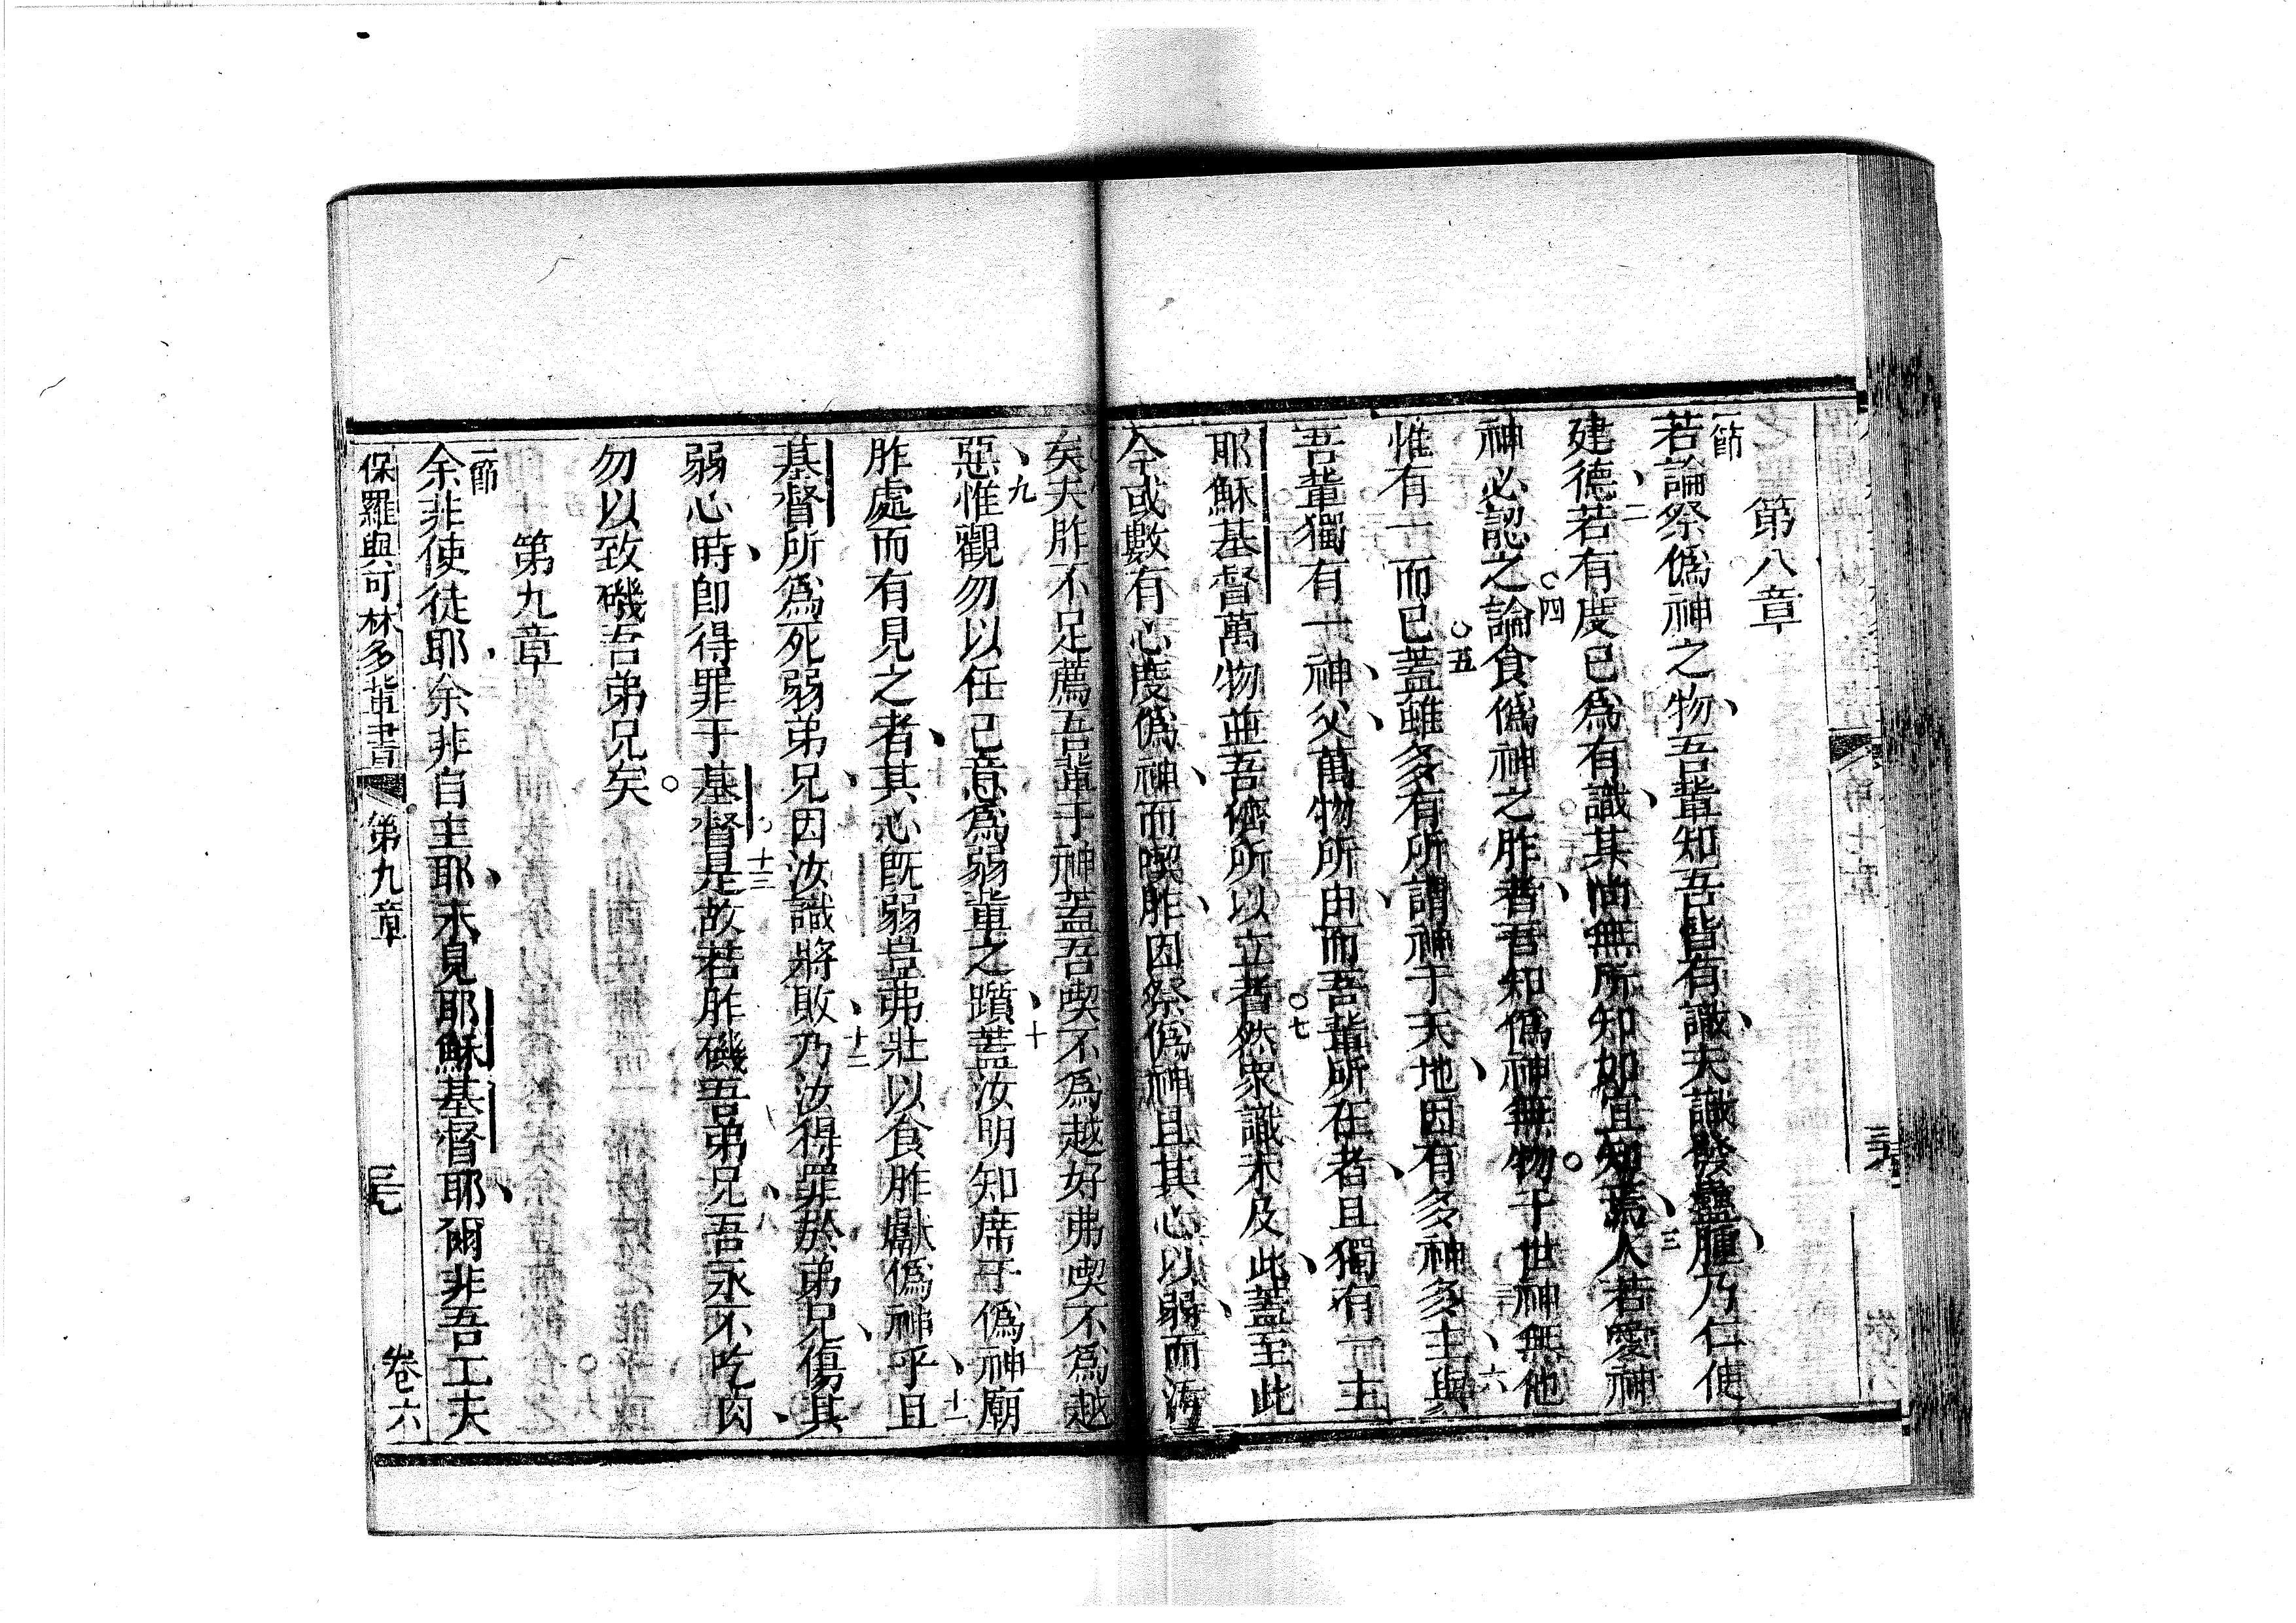 第八章
一節
若論祭偽神之物吾輩知吾皆有識夫識發蠱腫乃仁使
建德二若有度已為有識其尚無所知如宜知焉三人若愛神
神必認之四論食偽神之胙者吾知偽神無物于世神無他
惟有一而已五蓋雖多有所謂神于天地因有多神多主六與
吾輩獨有一神父萬物所由而吾輩所在者且獨有一主
耶穌基督萬物並吾儕所以立者七然眾識未及此蓋至此
今或數有心度偽神而喫胙因祭偽神且其心以弱而
矣夫胙不足薦吾輩于神蓋吾喫不為越好弗喫不為越
惡九惟觀勿以任己意為弱輩之躓十蓋汝明知席于偽神廟
胙處而有見之者其心既弱豈弗壯以食胙獻偽神乎十一且
基督所為死弱弟兄因汝識將敗十二乃汝得罪於弟兄傷其
弱心時即得罪于基督十三是故若胙磯吾弟兄吾永不吃肉
勿以致磯吾弟兄矣
第九章
一節
余非使徒耶余非自主耶未見耶穌基督耶爾非吾工夫
保羅與可林多輩書 第九章 三七 卷六